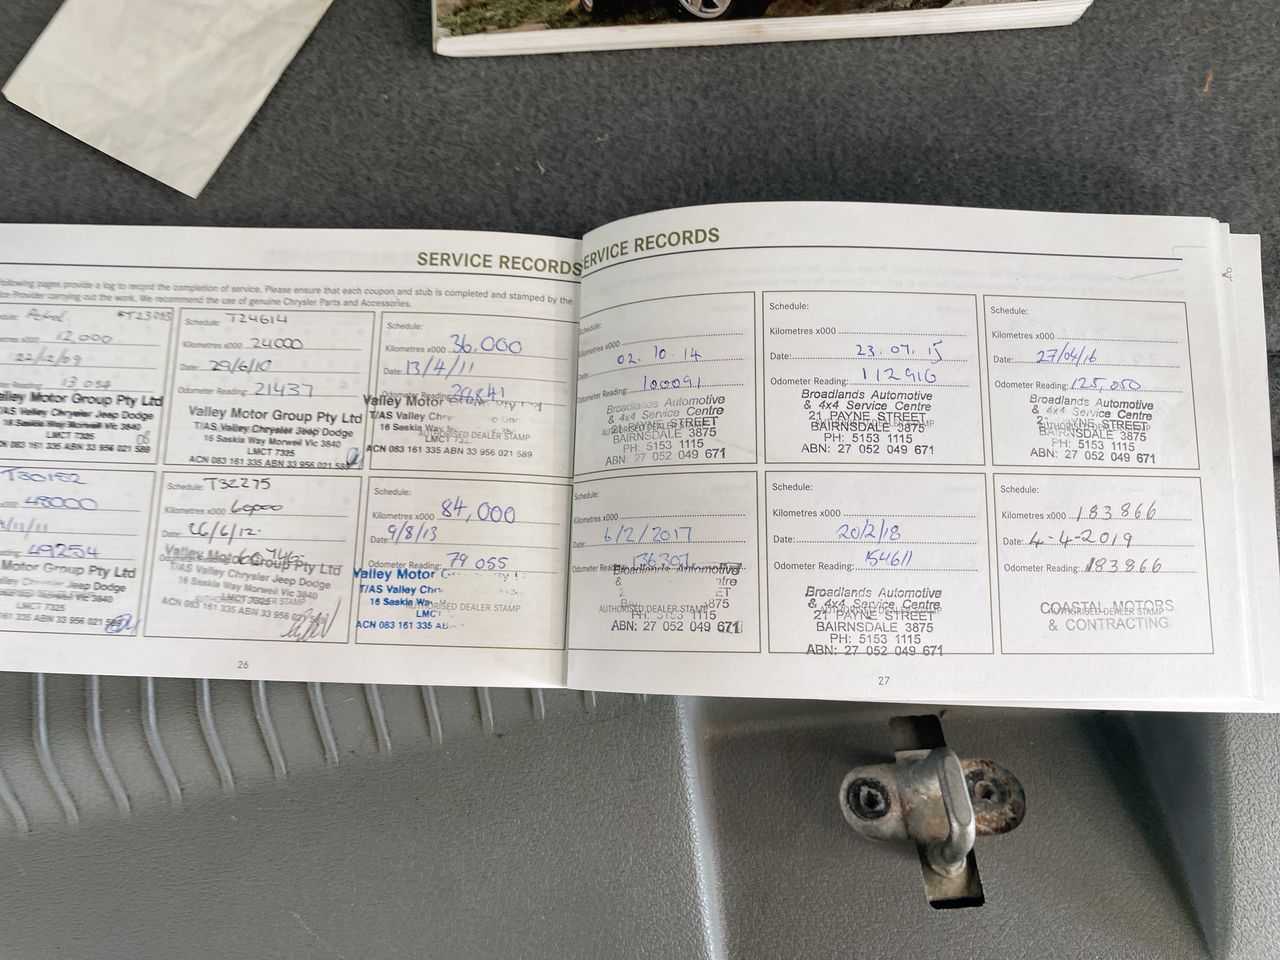 SERVICE RECORDS
following pages provide a log to record the completion of service. Please ensure that each coupon and stub is completed and stamped by the
Provider carrying out the work. We recommend the use of genuine Chrysler Parts and Accessories.
12,000
22/2/09
13 034
Valley Motor Group Pty Ltd
T/AS Valley Chrysler Jeep Dodge
16 Saskia Way Morwell Vic 3840
LMCT 7325
ACN 083 161 335 ABN 33 956 021 589
Schedule: T24614
Kilometres x000 24000
Date: 29/6/10
Odometer Reading: 21437
Valley Motor Group Pty Ltd
T/AS Valley Chrysler Jeep Dodge
16 Saskia Way Morwell Vic 3840
LMCT 7325
ACN 083 161 335 ABN 33 956 021 589
Schedule:
Kilometres x000 36,000
Date: 13/4/11
Odometer Reading:
Valley Motor
T/AS Valley Chry
16 Saskia Way
AUTHORISED DEALER STAMP
LMCT
ACN 083 161 335 ABN 33 956 021 589
T30152
x000 48000
/11/11
49254
Motor Group Pty Ltd
Valley Chrysler Jeep Dodge
16 Saskia Way Morwell Vic 3840
LMCT 7325
ACN 083 161 335 ABN 33 956 021 589
Schedule: T32275
Kilometres x000 60000
Date: 26/6/12
Valley Motor Group Pty Ltd
T/AS Valley Chrysler Jeep Dodge
16 Saskia Way Morwell Vic 3840
LMCT 7325
ACN 083 161 335 ABN 33 956 021 589
Schedule:
Kilometres x000 84,000
Date: 9/8/13
Odometer Reading: 79 055
Valley Motor
T/AS Valley Chry
16 Saskia Wa
AUTHORISED DEALER STAMP
LMCT
ACN 083 161 335 AB
26
SERVICE RECORDS
Schedule:
Kilometres x000
Date: 02.10.14
Odometer Reading: 100091
Broadlands Automotive
& 4x4 Service Centre
21 PAYNE STREET
BAIRNSDALE 3875
PH: 5153 1115
ABN: 27 052 049 671
Schedule:
Kilometres x000
Date: 23.07.15
Odometer Reading: 112916
Broadlands Automotive
& 4x4 Service Centre
21 PAYNE STREET
BAIRNSDALE 3875
PH: 5153 1115
ABN: 27 052 049 671
Schedule:
Kilometres x000
Date: 27/04/16
Odometer Reading: 125,050
Broadlands Automotive
& 4x4 Service Centre
PAYNE STREET
BAIRNSDALE 3875
PH: 5153 1115
ABN: 27 052 049 671
Schedule:
Kilometres x000
Date: 6/2/2017
Odometer Reading: 136307
Broadlands Automotive
&
AUTHORISED DEALER STAMP
3875
PH: 5153 1115
ABN: 27 052 049 671
Schedule:
Kilometres x000
Date: 20/2/18
Odometer Reading: 154611
Broadlands Automotive
& 4x4 Service Centre
21 PAYNE STREET
BAIRNSDALE 3875
PH: 5153 1115
ABN: 27 052 049 671
Schedule:
Kilometres x000 183866
Date: 4-4-2019
Odometer Reading: 183866
COASTAL MOTORS
AUTHORISED DEALER STAMP
& CONTRACTING
27